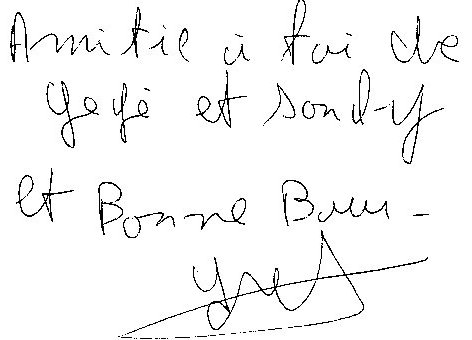 Amitié à toi de
Gégé et Sondy
et Bonne Bourr -
Yves